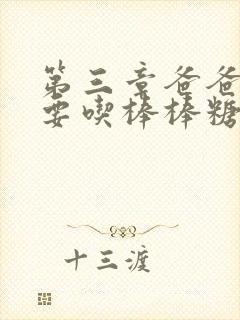 第三章爸爸
要喫棒棒糖
十三渡